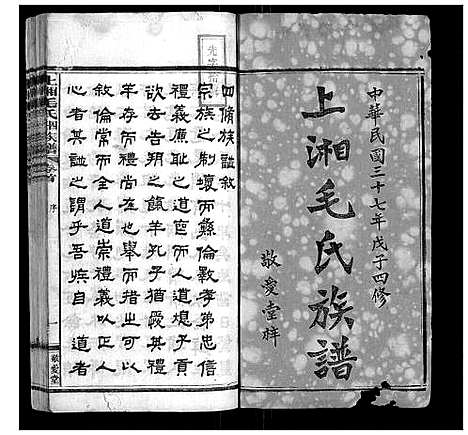 中華民國三十七年戊子四修
上湘毛氏族譜
敬愛堂梓
四修族譜敘
宗族之制壞而彝倫斁孝弟忠信
禮義廉恥之道窅而人道熄子貢
欲去告朔之餼羊孔子猶愛其禮
羊存而禮尚在也舉而措之可以
敘倫常而全人道崇禮義以正人
心者其譜之謂乎吾族自 道者
上湘毛氏四修族譜
卷首
序
一
敬愛堂